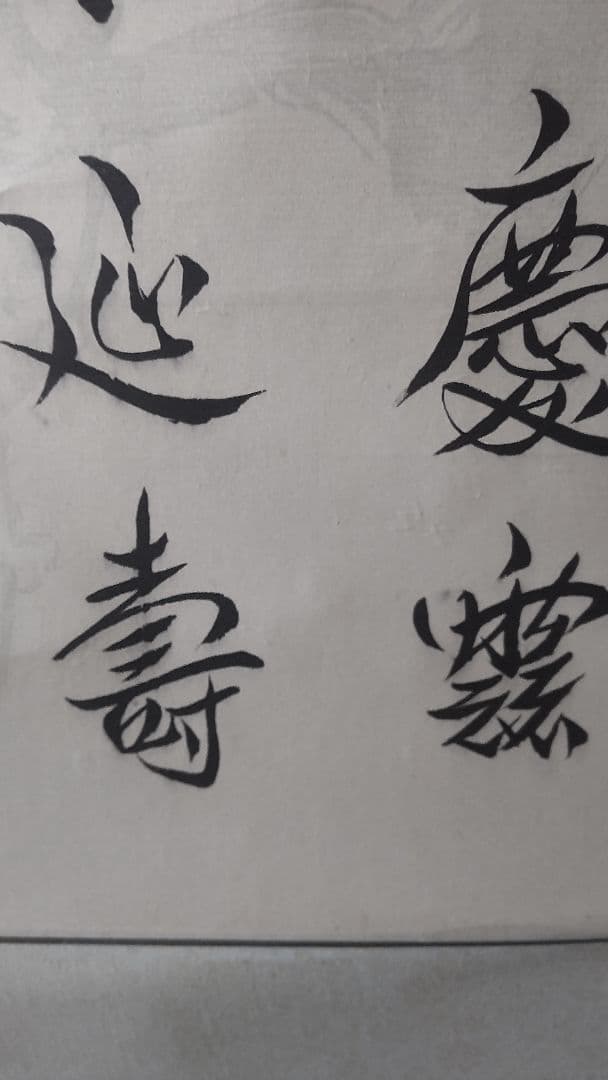 慶
延壽